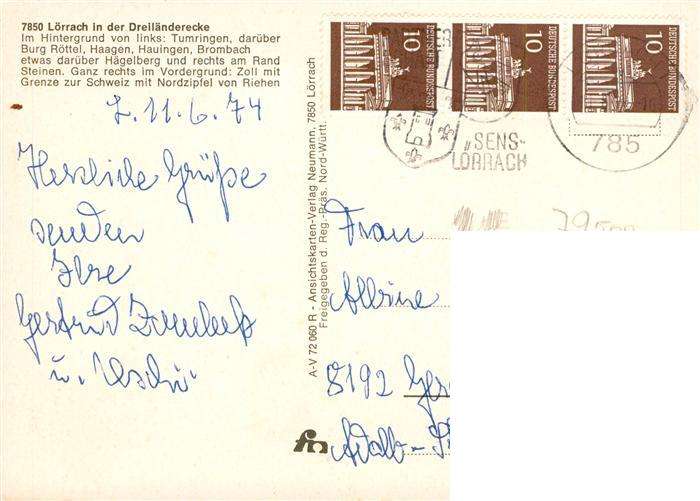 7850 Lörrach in der Dreiländerecke
Im Hintergrund von links: Tumringen, darüber
Burg Röttel, Haagen, Hauingen, Brombach
etwas darüber Hägelberg und rechts am Rand
Steinen. Ganz rechts im Vordergrund: Zoll mit
Grenze zur Schweiz mit Nordzipfel von Riehen
L. 11.6.74
Herzliche Grüße
senden
Ihre
Gertrud
u. Uschi
A-V 72 060 R - Ansichtskarten-Verlag Neumann, 7850 Lörrach
Freigegeben d. Reg.-Präs. Nord-Württ.
10 DEUTSCHE BUNDESPOST
10 DEUTSCHE BUNDESPOST
10 DEUTSCHE BUNDESPOST
SENS-
LÖRRACH
785
Frau
Albine
8192